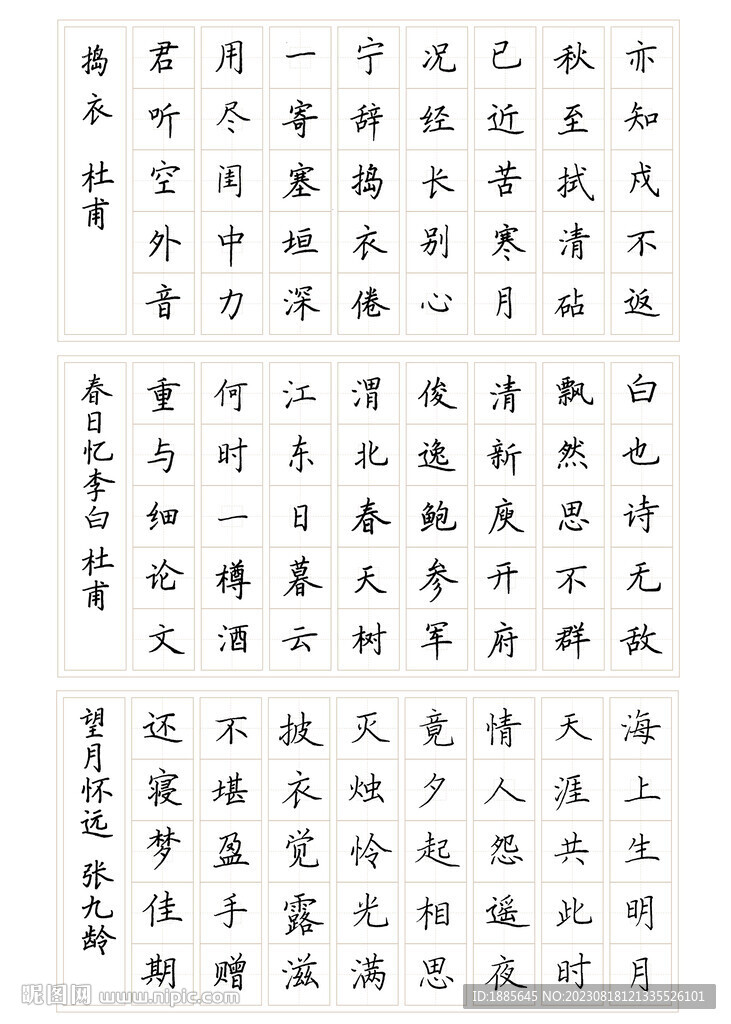 亦知戍不返
秋至拭清砧
已近苦寒月
况经长别心
宁辞捣衣倦
一寄塞垣深
用尽闺中力
君听空外音
捣衣 杜甫
白也诗无敌
飘然思不群
清新庾开府
俊逸鲍参军
渭北春天树
江东日暮云
何时一樽酒
重与细论文
春日忆李白 杜甫
海上生明月
天涯共此时
情人怨遥夜
竟夕起相思
灭烛怜光满
披衣觉露滋
不堪盈手赠
还寝梦佳期
望月怀远 张九龄
昵图网 www.nipic.com
ID:1885645 NO:20230818121335526101